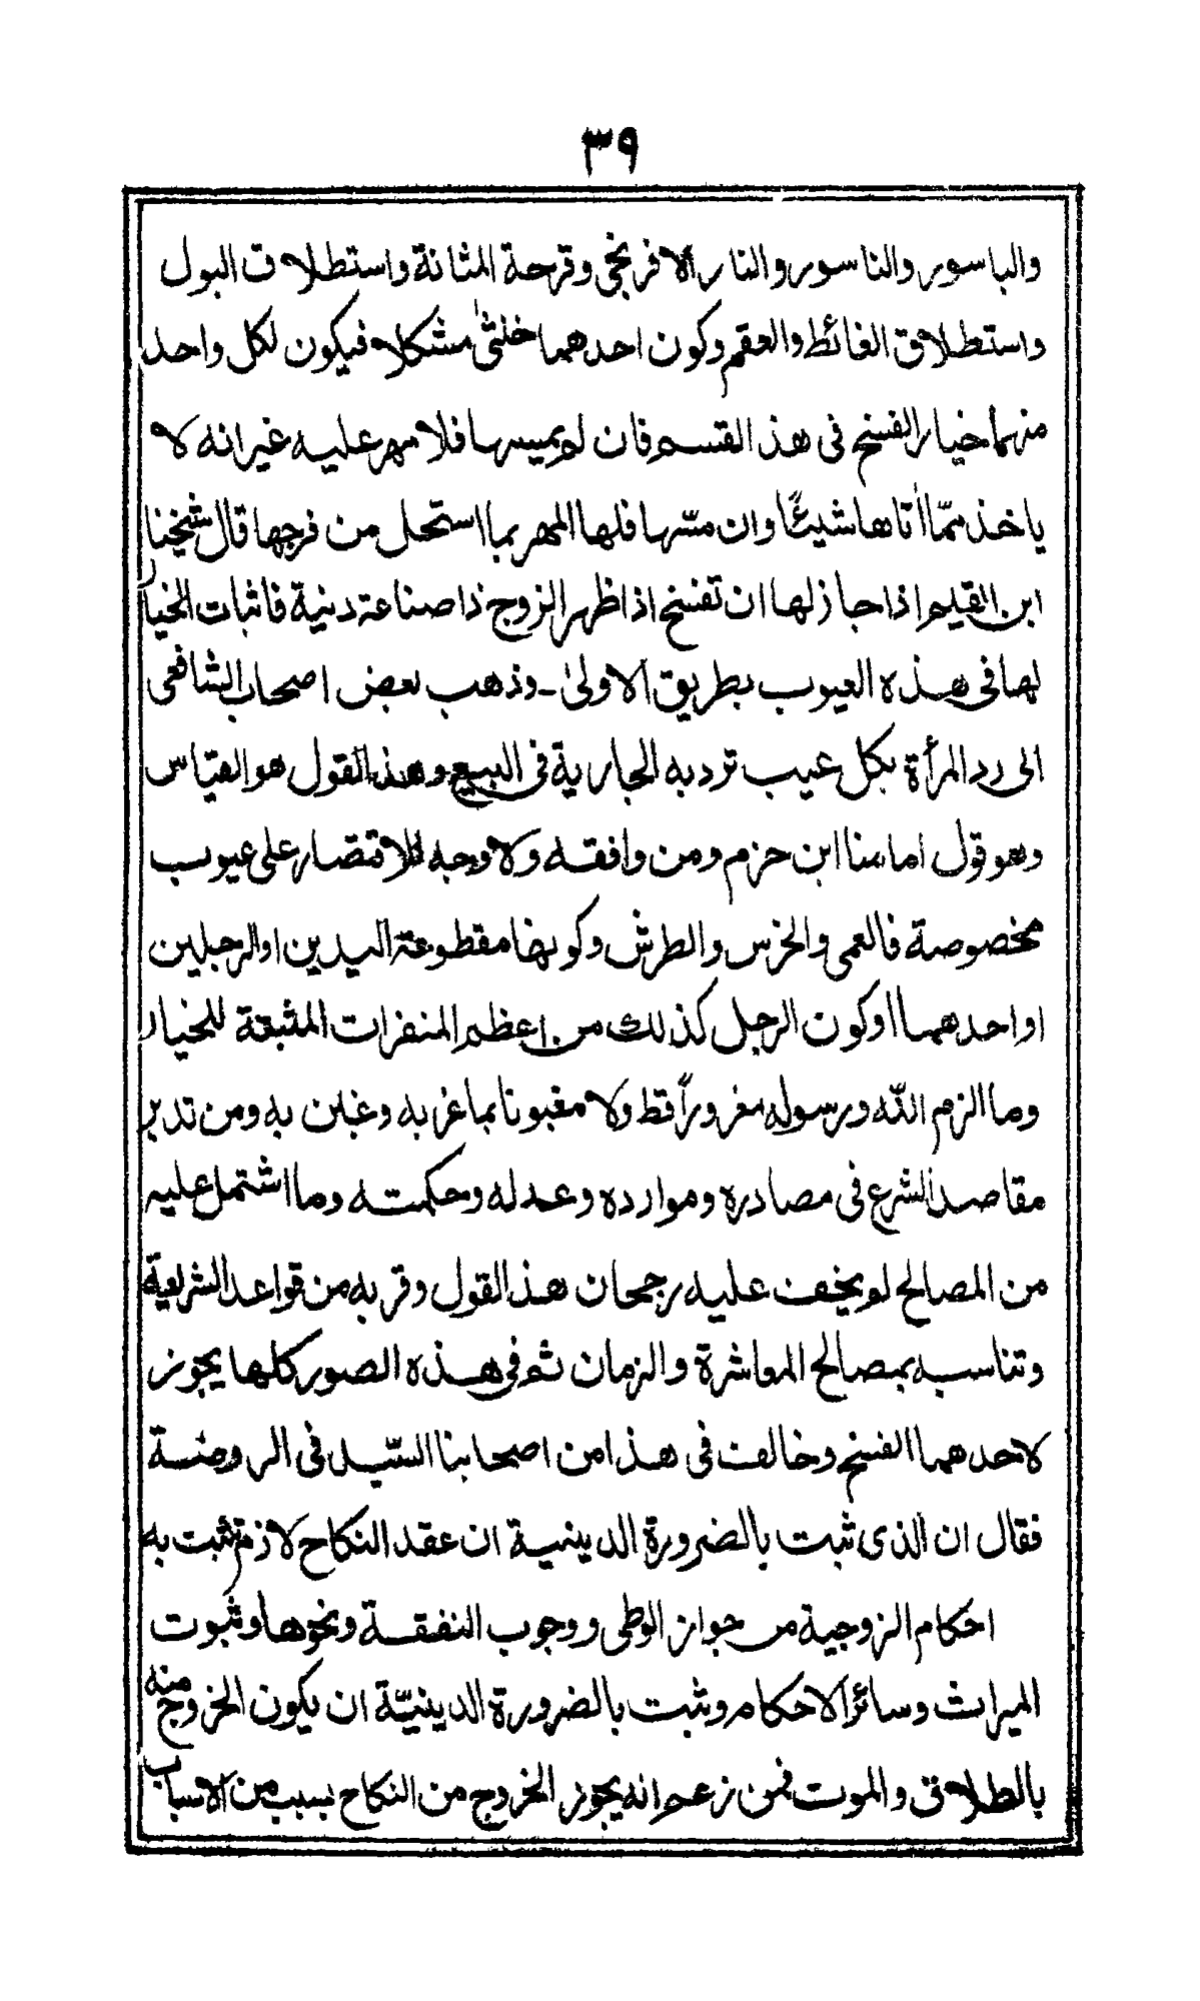 ٣٩
والباسور والناسور والنار الافرنجي وقرحة المثانة واستطلاق البول
واستطلاق الغائط والعقم وكون احدهما خنثىٰ مشكلا فيكون لكل واحد
منهما خيار الفسخ فى هذا القسم فان لم يمسها فلا مهر عليه غير انه لا
ياخذ ممّا اٰتاها شيئًا وان مسّها فلها المهر بما استحل من فرجها قال شيخنا
ابن القيم اذا جاز لها ان تفسخ اذا ظهر الزوج ذا صناعة دنية فاثبات الخيار
لها فى هذه العيوب بطريق الاولىٰ ـ وذهب بعض اصحاب الشافعى
الى رد المرأة بكل عيب ترد به الجارية فى البيع وهذا القول هو القياس
وهو قول امامنا ابن حزم ومن وافقه ولا وجه للاقتصار على عيوب
مخصوصة فالعمى والخرس والطرش وكونها مقطوعة اليدين او الرجلين
او احدهما او كون الرجل كذلك من اعظم المنفرات المثبتة للخيار
وما الزم اللّه ورسوله مغروراً قط ولا مغبونا بما غر به وغبن به ومن تدبر
مقاصد الشرع فى مصادره وموارده وعدله وحكمته وما اشتمل عليه
من المصالح لم يخف عليه رجحان هذا القول وقربه من قواعد الشريعة
وتناسبه بمصالح المعاشرة والزمان ثم فى هذه الصور كلها يجوز
لاحدهما الفسخ وخالف فى هذا من اصحابنا السّيد فى الروضة
فقال ان الذى ثبت بالضرورة الدينية ان عقد النكاح لازم ثبت به
احكام الزوجية من جواز الوطى ووجوب النفقة ونحوها وثبوت
الميراث وسائر الاحكام وثبت بالضرورة الدينيّة ان يكون الخروج منه
بالطلاق والموت فمن زعم انه يجوز الخروج من النكاح بسبب من الاسباب